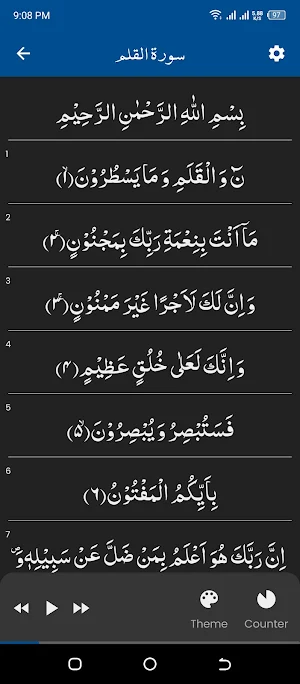 9:08 PM 5.88 K/S 97
سورة القلم
بِسْمِ اللّٰهِ الرَّحْمٰنِ الرَّحِيْمِ
1
نٓ وَ الْقَلَمِ وَ مَا يَسْطُرُوْنَۙ(۱)
2
مَاۤ اَنْتَ بِنِعْمَةِ رَبِّكَ بِمَجْنُوْنٍۚ(۲)
3
وَ اِنَّ لَكَ لَاَجْرًا غَيْرَ مَمْنُوْنٍۚ(۳)
4
وَ اِنَّكَ لَعَلٰى خُلُقٍ عَظِيْمٍ(۴)
5
فَسَتُبْصِرُ وَ يُبْصِرُوْنَۙ(۵)
6
بِاَىِّكُمُ الْمَفْتُوْنُ(۶)
7
اِنَّ رَبَّكَ هُوَ اَعْلَمُ بِمَنْ ضَلَّ عَنْ سَبِيْلِهٖ۪-وَ
Theme Counter